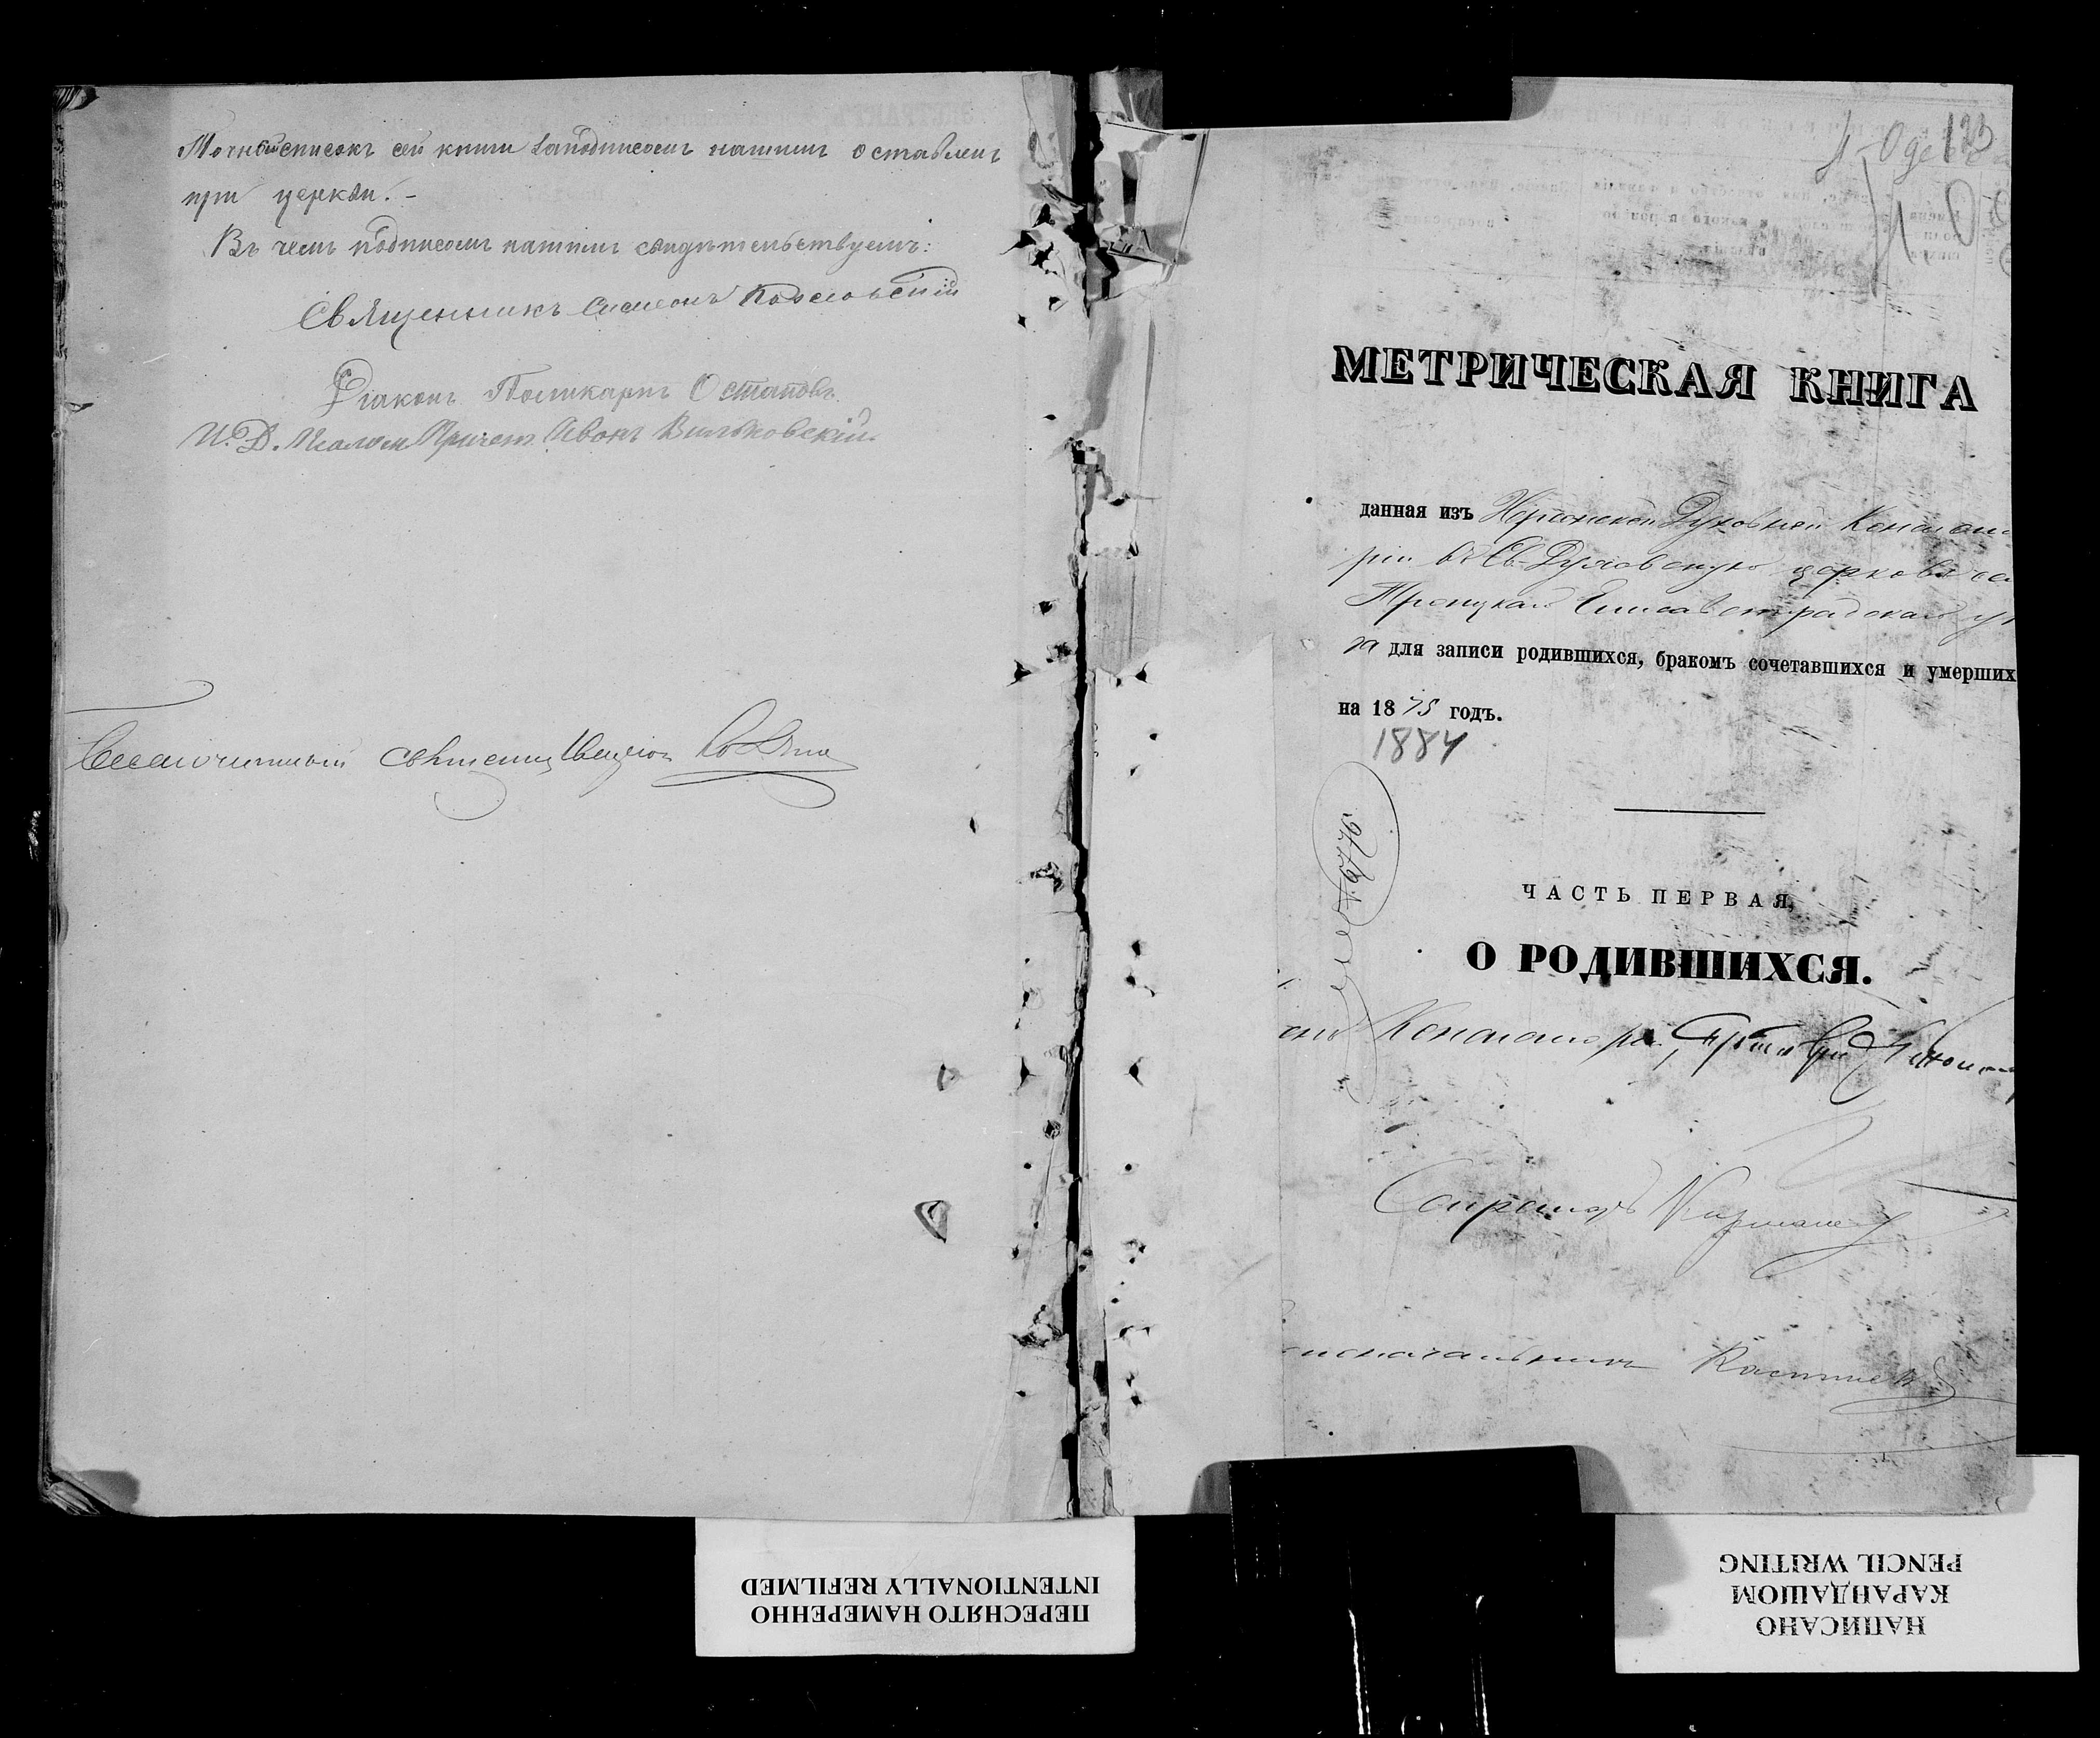 Точный списокъ сей книги заподписомъ нашимъ оставленъ
при церкви. -
Въ чемъ подписомъ нашимъ свидѣтельствуемъ:
Священникъ Симеонъ Козловскій
Діаконъ Поликарпъ Остаповъ
И. Д. Псалом Причет. Иванъ Вильковскій
Благочинный священ
193
МЕТРИЧЕСКАЯ КНИГА
данная изъ Херсонской Духовной Консисто
ріи въ Св-Духовскую церковь се
Троицкаго Елисаветградскаго уѣ
да для записи родившихся, бракомъ сочетавшихся и умерших
на 1875 годъ.
1884
ЧАСТЬ ПЕРВАЯ,
О РОДИВШИХСЯ.
Консисторіи,
Секретарь
НАПИСАНО
КАРАНДАШОМ
PENCIL WRITING
ПЕРЕСНЯТО НАМЕРЕННО
INTENTIONALLY REFILMED